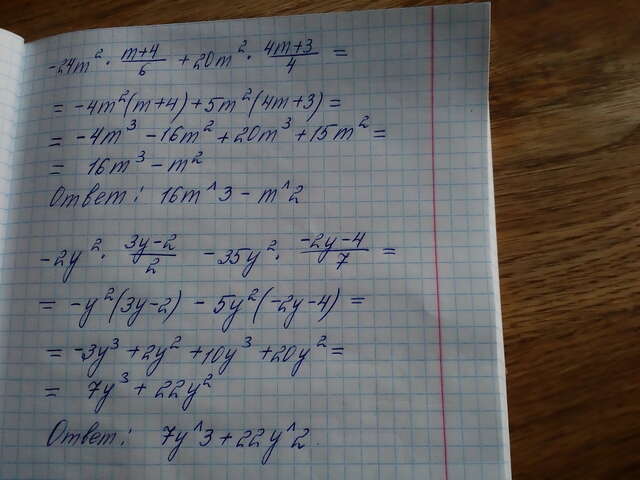 -24m²·(m+4)/6 + 20m²·(4m+3)/4 =
= -4m²(m+4)+5m²(4m+3)=
= -4m³ -16m²+20m³+15m²=
= 16m³-m²
Ответ: 16m^3-m^2
-2y²·(3y-2)/2 -35y²·(-2y-4)/7 =
= -y²(3y-2) - 5y²(-2y-4)=
= -3y³+2y²+10y³+20y²=
= 7y³+22y²
Ответ: 7y^3+22y^2.